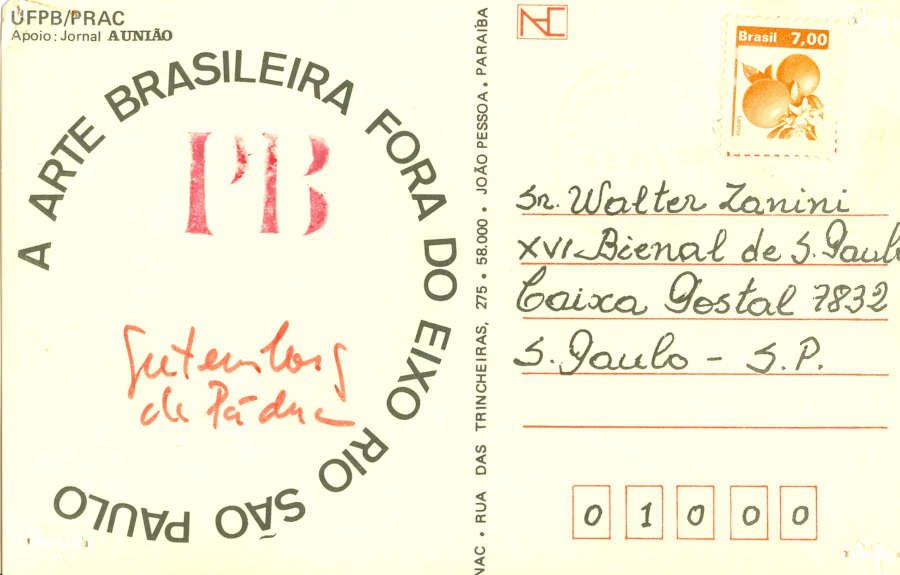 UFPB/PRAC
Apoio: Jornal A UNIÃO
A ARTE BRASILEIRA FORA DO EIXO RIO SÃO PAULO
PB
Gutemberg
de Pádua
NAC • RUA DAS TRINCHEIRAS, 275 • 58.000 • JOÃO PESSOA, PARAÍBA
NAC
Brasil 7,00
Laranja
Sr. Walter Zanini
XVI Bienal de S. Paulo
Caixa Postal 7832
S. Paulo - S.P.
0 1 0 0 0